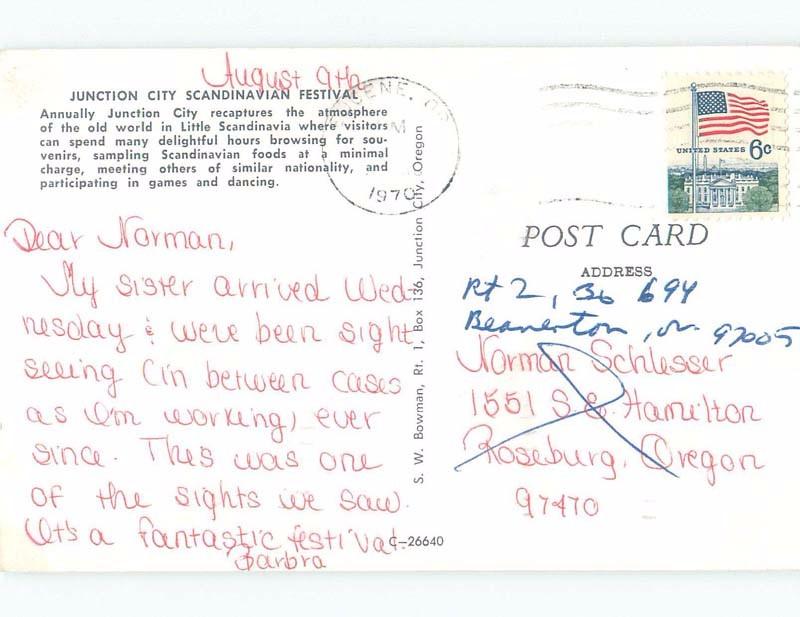 August 9th
JUNCTION CITY SCANDINAVIAN FESTIVAL
Annually Junction City recaptures the atmosphere
of the old world in Little Scandinavia where visitors
can spend many delightful hours browsing for sou-
venirs, sampling Scandinavian foods at a minimal
charge, meeting others of similar nationality, and
participating in games and dancing.
Dear Norman,
My sister arrived Wed-
nesday & we've been sight
seeing (in between cases
as I'm working) ever
since. This was one
of the sights we saw.
It's a fantastic festival.
Barbra
S. W. Bowman, Rt. 1, Box 136, Junction City, Oregon
C-26640
EUGENE, OR
M
1970
UNITED STATES 6c
POST CARD
ADDRESS
Rt 2, Bo 694
Beaverton, Or. 97005
Norman Schlesser
1551 S.E. Hamilton
Roseburg, Oregon
97470